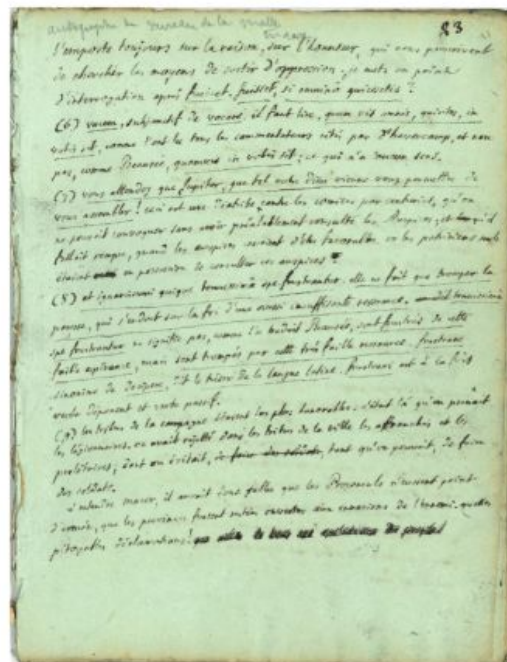 autographe du bureau de la malle
83
l'emporte toujours sur la raison, sur l'honneur, qui nous prescrivent
de chercher les moyens de sortir d'oppression. je mets un point
d'interrogation après fuisset, si omnino quiessetis?
(6) , subjonctif de , il faut lire, quum vis omnis, quirites, in
vobis sit, comme l'ont lu tous les commentateurs cités par havercamp, et non
pas, comme , quoniam in vobis sit; ce qui n'a aucun sens.
(7) vous attendez que Jupiter, que tel autre dieu vienne vous permettre de
vous assembler! ceci est une contre les comices par centuries, qu'on
ne pouvait convoquer sans avoir préalablement consulté les auspices, et qu'il
fallait rompre, quand les auspices d'être favorables. or les patriciens seuls
étaient en possession de consulter ces auspices
(8) et ignavissimi quique tenuissimâ spe frustrantur. elle ne fait que tromper la
, qui s'endort sur la foi d'une aussi insuffisante ressource.
spe frustrantur ne signifie pas, comme l'a traduit , sont frustrés de cette
faible espérance, mais sont trompés par cette très faible ressource. frustrare
sinonime de decipere, dit le trésor de la langue latine. frustrari est à la fois
verbe déponent et verbe passif.
(9) les tribus de la campagne étaient les plus honorables. c'était là qu'on prenait
les légionnaires. on avait rejetté dans les tribus de la ville les affranchis et les
prolétaires; dont on évitait, tant qu'on pouvait, de faire
des soldats.
à entendre macer, il aurait donc fallu que les Romains n'eussent point
d'armée, que les provinces fussent restées ouvertes aux invasions de l'ennemi. quelles
pitoyables déclamations!